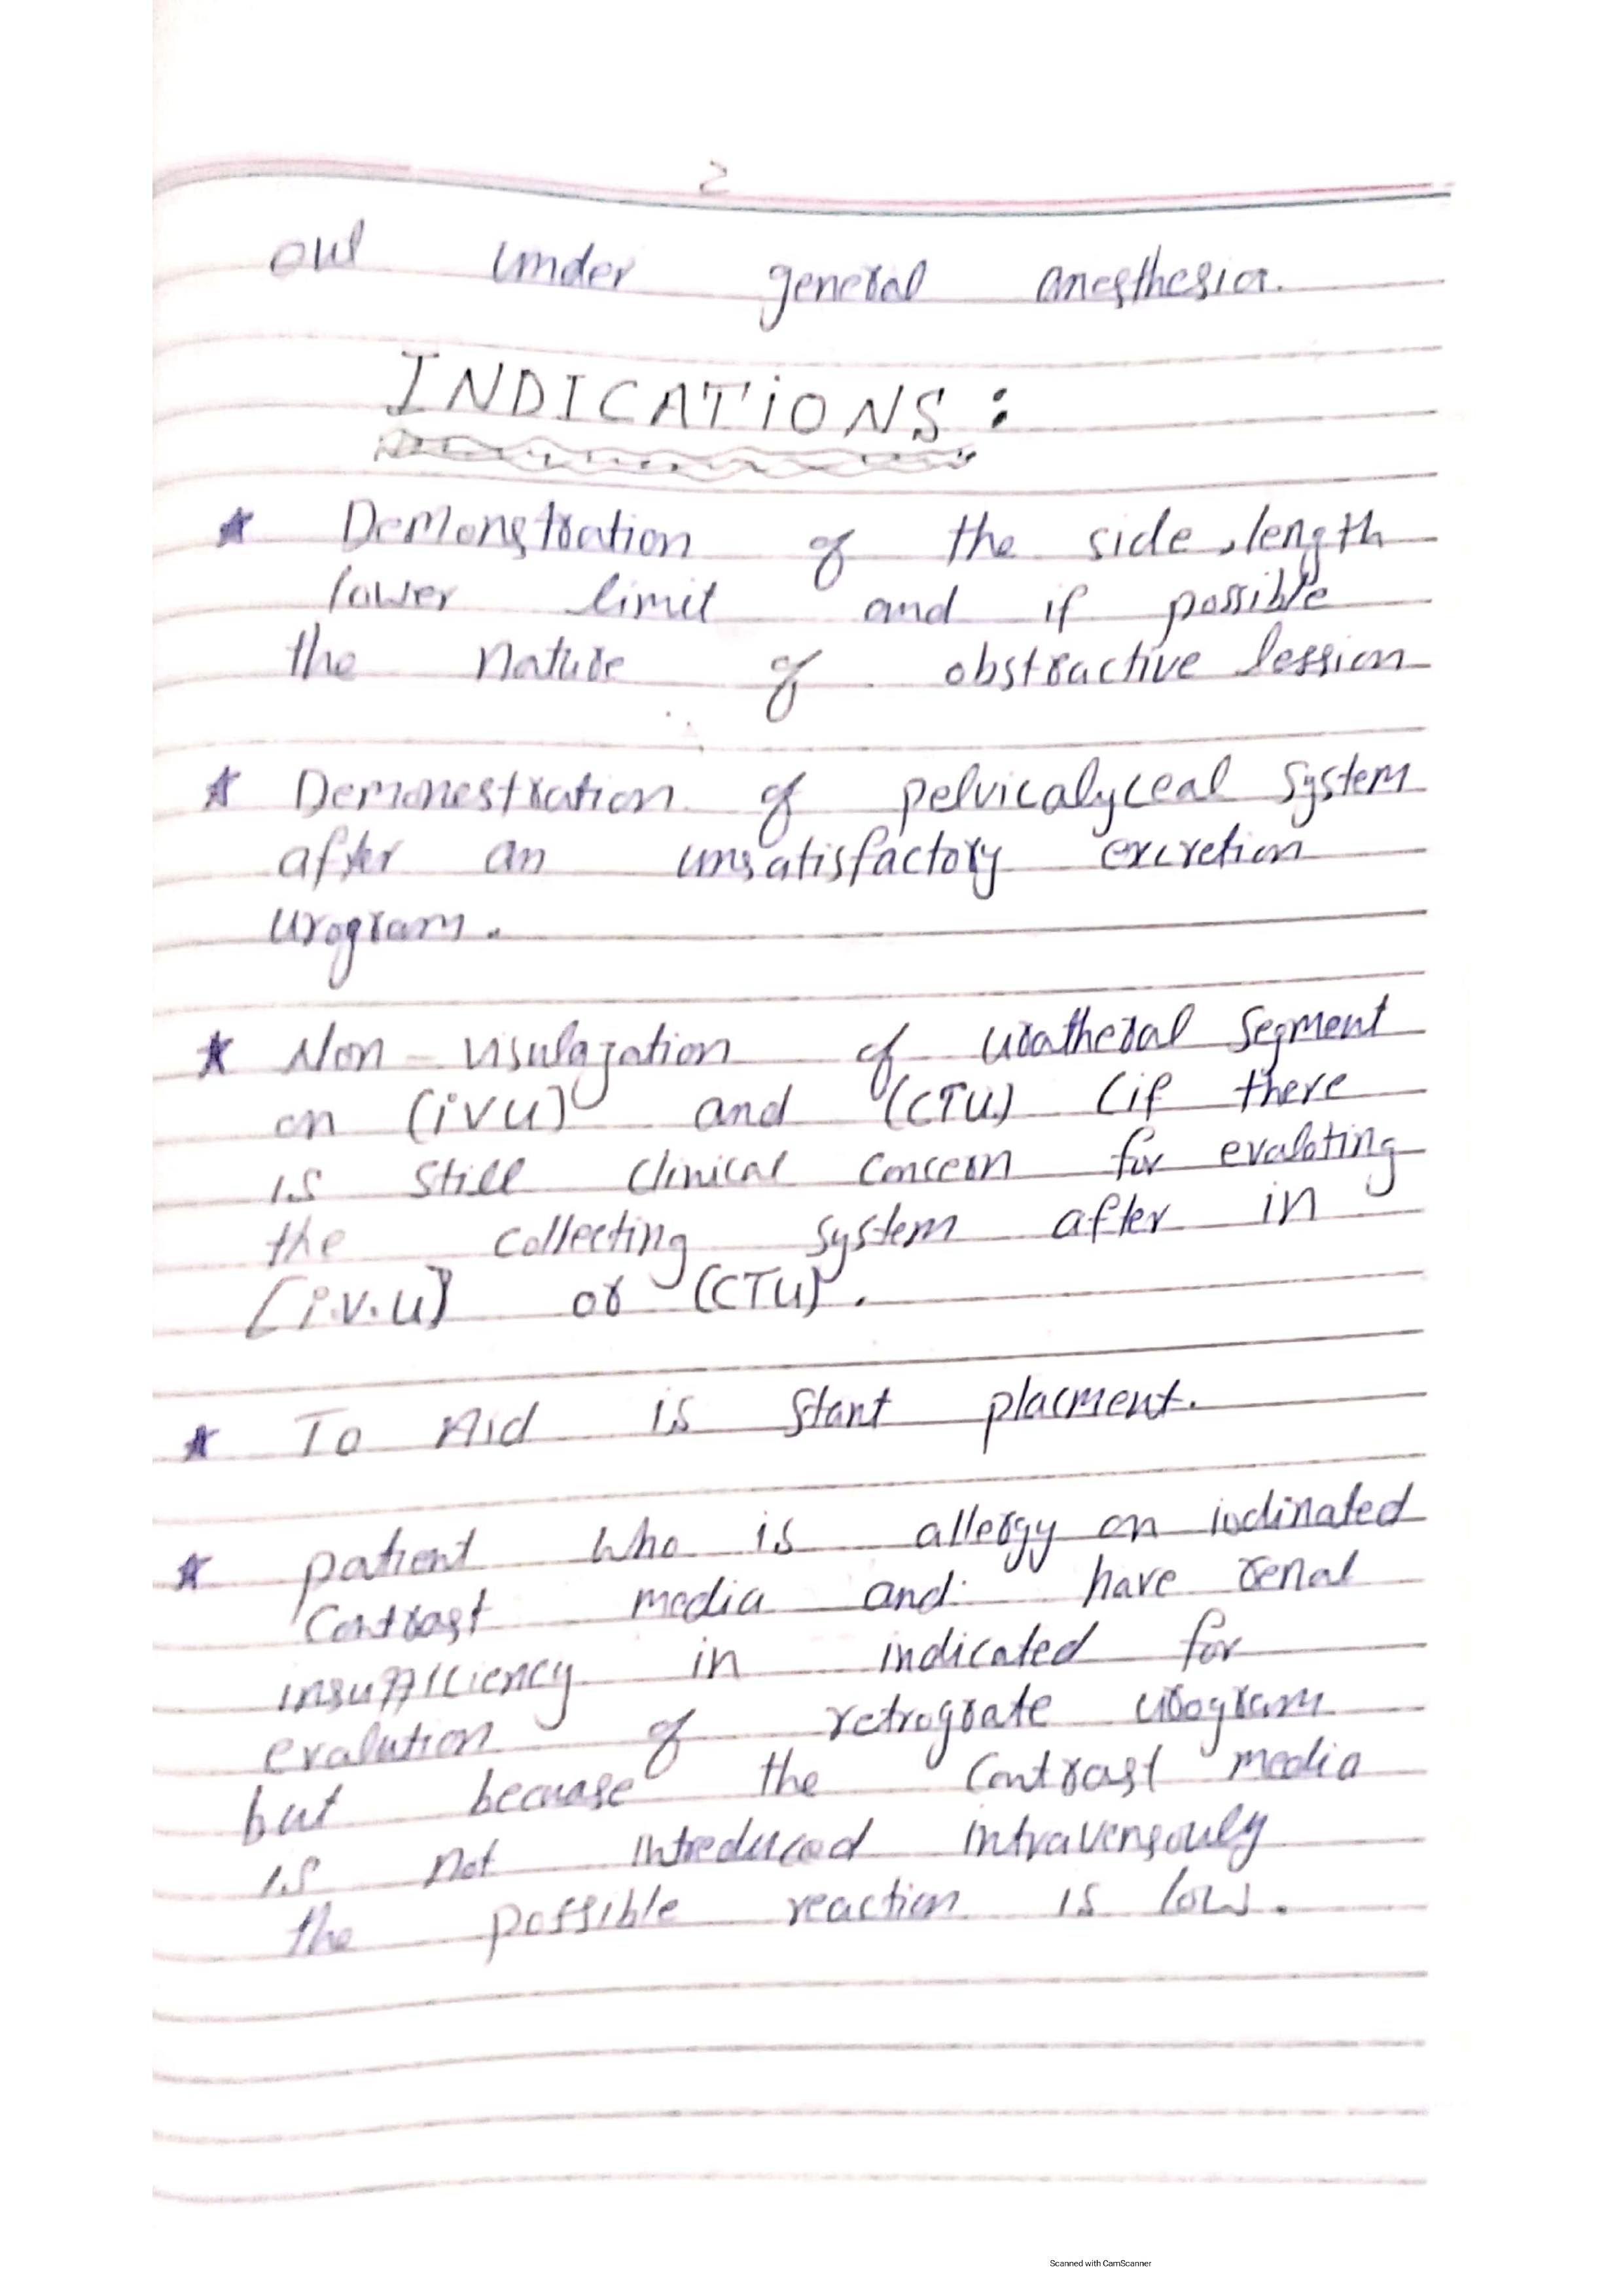 2
out under general anesthesia.
INDICATIONS :
★ Demonstration of the side, length
lower limit and if possible
the nature of obstractive lession
★ Demonestration of pelvicalyceal system
after an unsatisfactory excretion
urogram.
★ Non - visulazation of uratheral segment
on (IVU) and (CTU) (if there
is still clinical concern for evaloting
the collecting system after in
[i.v.u] or (CTU).
★ To Aid is stant placment.
★ patient who is allergy on iodinated
contrast media and have renal
insufficiency in indicated for
evalution of retrograte urogram
but becuase the contrast media
is not intreduced intravensouly
the possible reaction is low.
Scanned with CamScanner